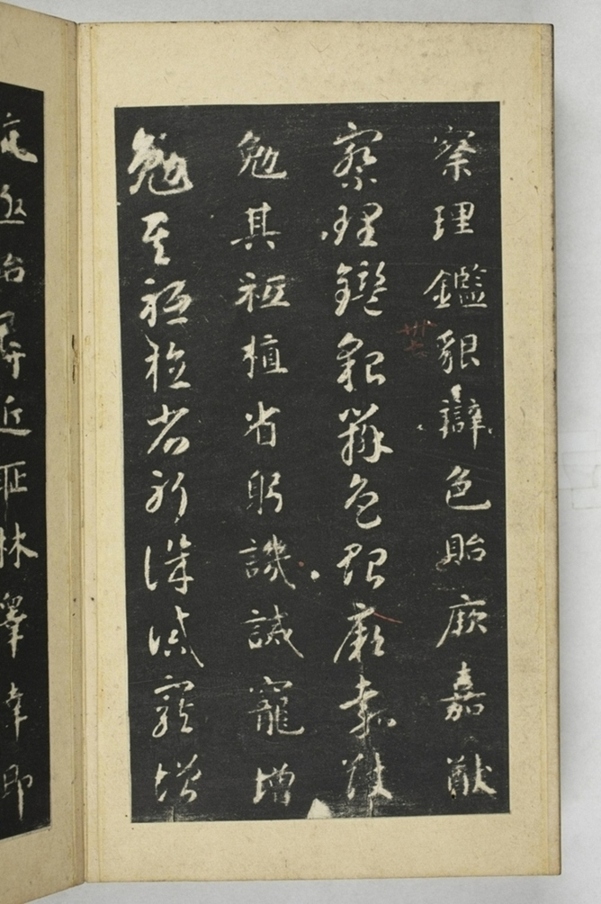 察理鑑貌辯色貽厥嘉猷
察理鑑貌辯色貽厥嘉猷
勉其祗植省躬譏誡寵增
勉其祗植省躬譏誡寵增
殆辱近恥林皋幸即